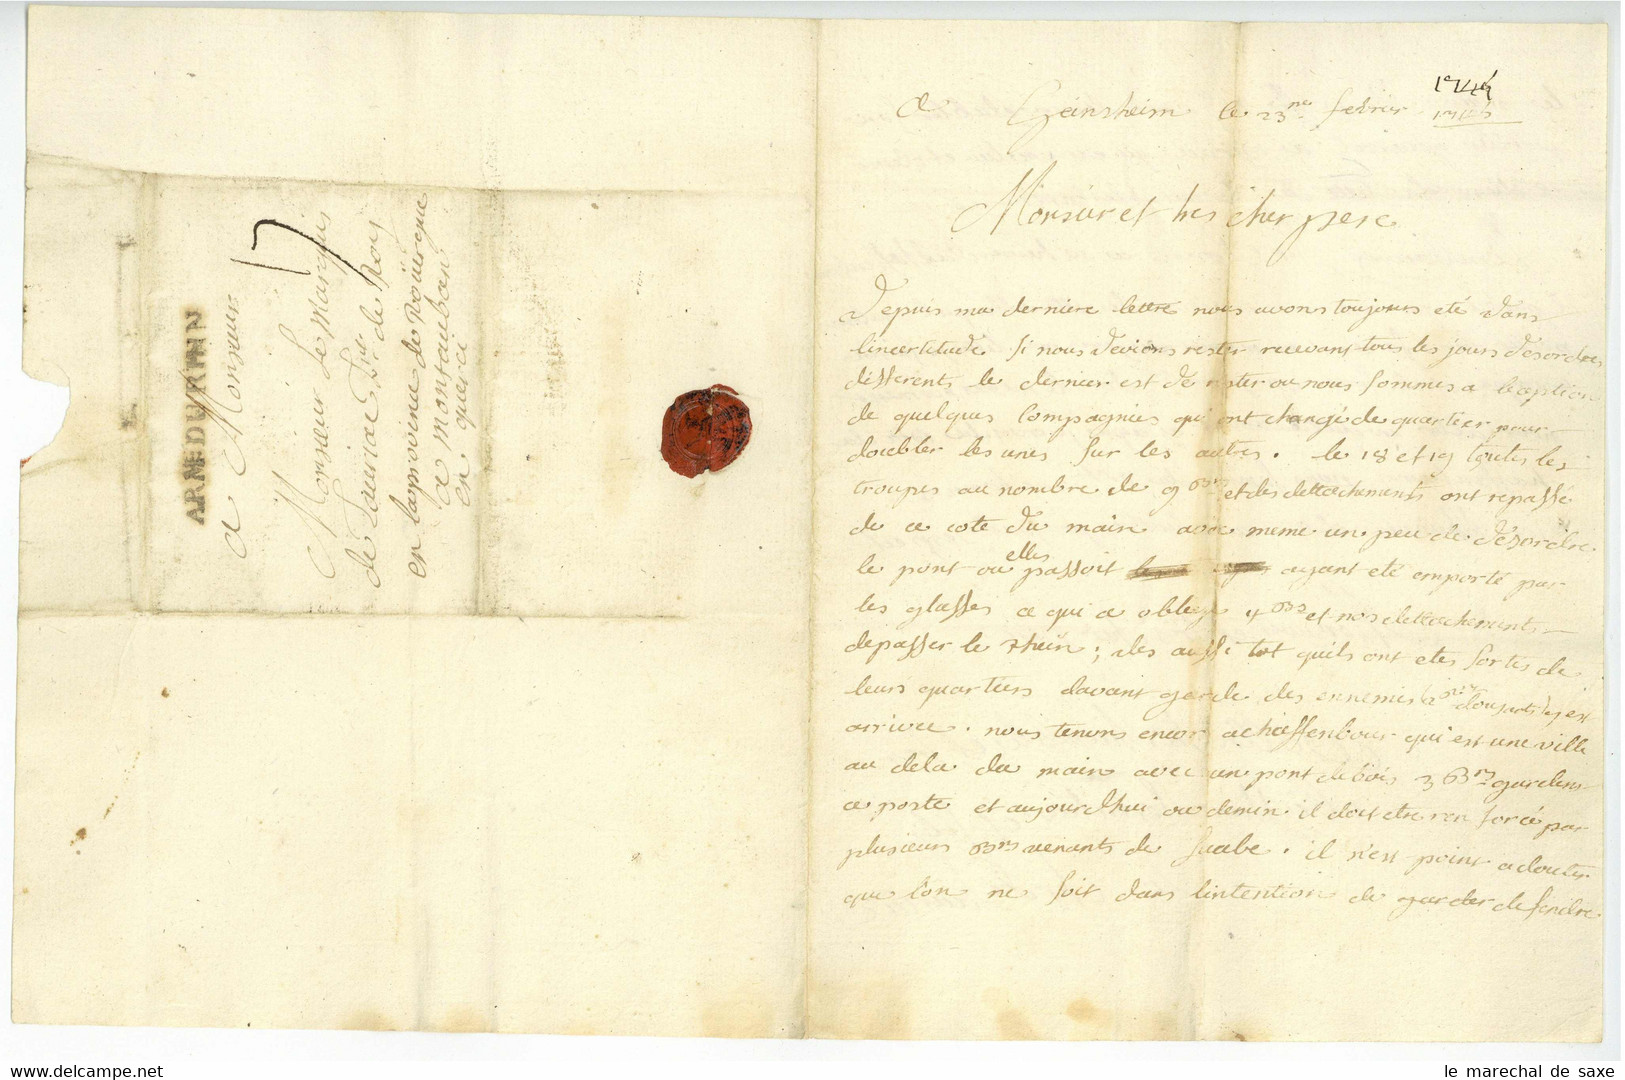 ARM:DU RHIN
a Monsieur
7
Monsieur Le Marquis
de Lauriac de Noej
en laprovince de Roüergue
a montauban
en querci
a Geinsheim ce 23me fevrier 1745
1745
Monsieur et tres cher pere
Depuis ma derniere lettre nous avons toujours eté dans
lincertitude si nous devions rester recevant tous les jours desordres
differents le dernier est de rester ou nous sommes a lexeption
de quelques Compagnies qui ont changé de quartier pour
doubler les unes sur les autres. le 18 et 19 toutes les
troupes au nombre de 9 Bns et des dettachements ont repassé
de ce coté du main avec meme un peu de desordre
le pont ou elles passoit ayant eté emporté par
les glasses ce qui a obligé 4 Bns et nos dettachements
depasser le Rhein; des aussi tot quils ont etes sortis de
leurs quartiers davant garde des ennemis y est
arrivee. nous tenons encor achaffenbour qui est une ville
au dela du main avec un pont de bois 3 Bns gardens
ce poste et aujourdhui ou demin il doit etre renforcé par
plusieurs Bns venants de suabe. il n'est point adouter
que lon ne soit dans lintention de garder defendre
le marechal de saxe